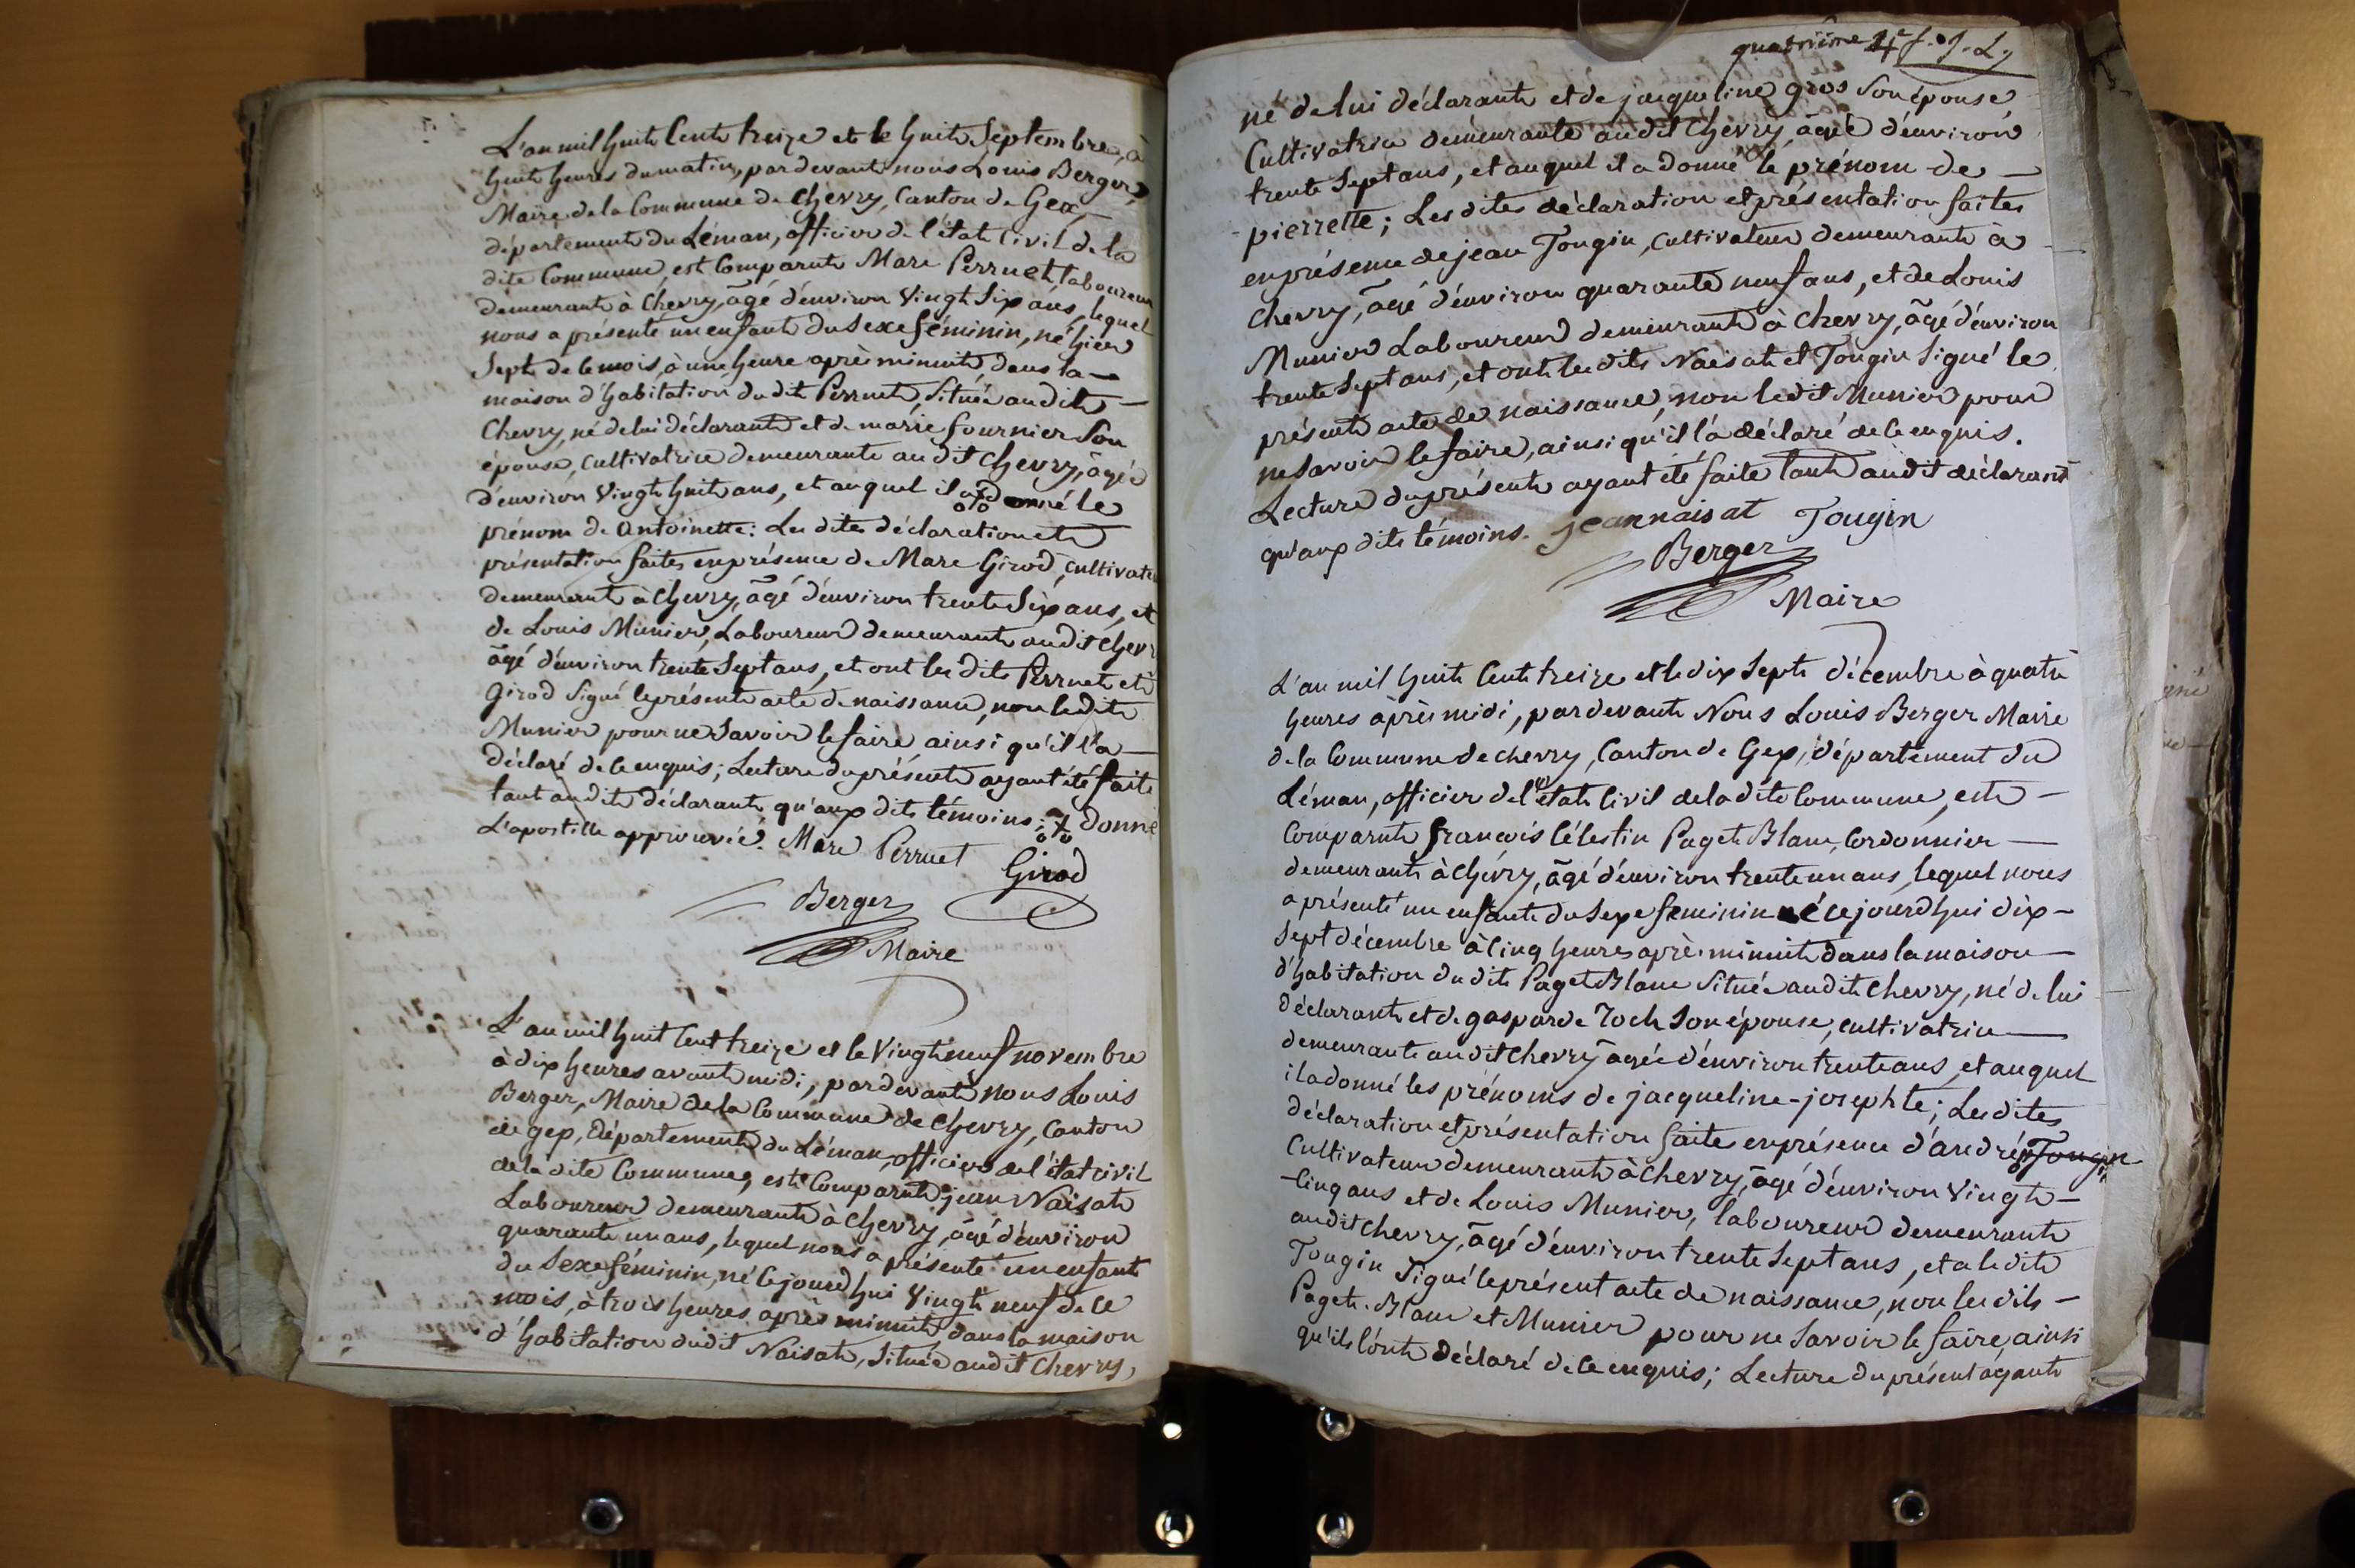 L'an mil huit Cent treize et le huit Septembre, à
huit heures du matin, par devant nous Louis Berger,
Maire de la Commune de Chevry, Canton de Gex,
département du Léman, officier de l'état Civil de la
dite Commune, est Comparut Marc Perruet laboureur
demeurant à Chevry, âgé d'environ Vingt Six ans, lequel
nous a présenté un enfant du Sexe féminin, né hier
Sept de ce mois, à une heure après minuit, dans la
maison d'habitation du dit Perruet, Située au dit
Chevry, né de lui déclarant et de marie fournier Son
épouse, Cultivatrice demeurante au dit Chevry, âgée
d'environ Vingt huit ans, et auquel il a donné le
prénom de Antoinette: Les dites déclaration et
présentation faites en présence de Marc Girod, Cultivateu
demeurant à Chevry, âgé d'environ trente Six ans, et
de Louis Munier, Laboureur demeurant au dit Chevr
âgé d'environ trente Sept ans, et ont les dits Perruet et
Girod Signé le présent acte de naissance, non le dit
Munier pour ne Savoir le faire ainsi qu'il l'a
déclaré de ce enquis; Lecture du présent ayant été faite
tant au dit déclarant, qu'aux dits témoins; donné
L'apostille approuvée. Marc Perruet
Girod
Berger
Maire
L'an mil huit Cent treize et le Vingt neuf novembre
à dix heures avant midi, par devant nous Louis
Berger, Maire de la Commune de Chevry, Canton
de gex, Département du Léman, officier de l'état civil
de la dite Commune, est Comparut jean Naisat
Laboureur demeurant à Chevry, âgé d'environ
quarante un ans, lequel nous a présenté un enfant
du Sexe féminin, né ce jourd'hui Vingt neuf de ce
mois, à trois heures après minuit dans la maison
d'habitation du dit Naisat, Située au dit Chevry,
quatrième 4e f.
né de lui déclarant et de jacqueline gros Son épouse
Cultivatrice demeurante au dit Chevry, âgée d'environ
trente Sept ans, et auquel il a donné le prénom de
pierrette; Les dites déclaration et présentation faites
en présence de jean Tougin, Cultivateur demeurant à
Chevry, âgé d'environ quarante neuf ans, et de Louis
Munier Laboureur demeurant à Chevry, âgé d'environ
trente Sept ans, et ont les dits Naisat et Tougin Signé le
présent acte de naissance, non le dit Munier pour
ne Savoir le faire, ainsi qu'il l'a déclaré de ce enquis.
Lecture du présent ayant été faite tant au dit déclarant
qu'aux dits témoins. jean naisat Tougin
Berger
Maire
L'an mil huit Cent treize et le dix Sept décembre à quatre
heures après midi, par devant Nous Louis Berger Maire
de la Commune de chevry, Canton de Gex, département du
Léman, officier de l'état Civil de la dite Commune, est
Comparut françois Célestin Paget Blanc, Cordonnier
demeurant à Chevry, âgé d'environ trente un ans, lequel nous
a présenté un enfant du Sexe feminin né ce jourd'hui dix-
Sept décembre à Cinq heures après minuit dans la maison
d'habitation du dit Paget Blanc Située au dit Chevry, né de lui
déclarant et de gasparde Roch Son épouse, cultivatrice
demeurante au dit Chevry âgée d'environ trente ans, et auquel
il a donné les prénoms de jacqueline-josephte; Les dites
déclaration et présentation faite en présence d'andré Tougin
Cultivateur demeurant à Chevry, âgé d'environ Vingt-
-Cinq ans et de Louis Munier, laboureur demeurant
au dit Chevry, âgé d'environ trente Sept ans, et a le dit
Tougin Signé le présent acte de naissance, non les dits
Paget-Blanc et Munier pour ne Savoir le faire, ainsi
qu'ils l'ont déclaré de ce enquis; Lecture du présent ayant